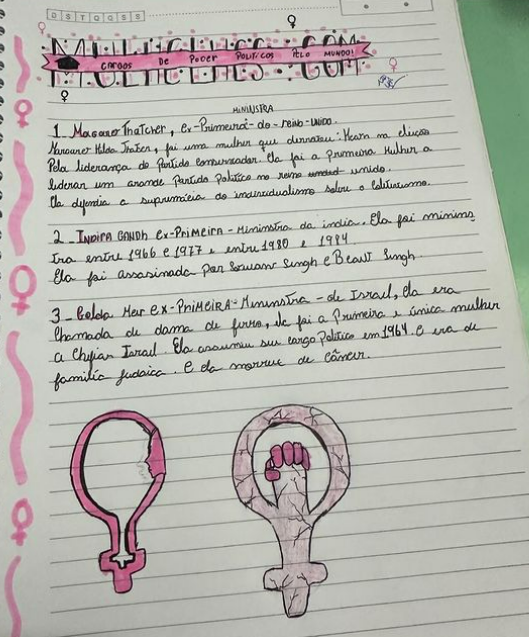 D S T Q Q S S
MULHERES COM
CARGOS DE PODER POLITICOS PELO MUNDO!
MINISTRA
1 Margaret Thatcher, ex-Primeira-do-reino-unido.
Margaret Hilda Thatcher, foi uma mulher que derrotou: Hearn na eleição
Pela liderança do Partido Conservador. Ela foi a Primeira Mulher a
liderar um grande Partido Politico no reino unido.
Ela defendia a supremácia do individualismo sobre o
2 - INDIRA GANDH Ex-Primeira-Mininstra da india. Ela foi minins
tra entre 1966 e 1977 e entre 1980 e 1984
Ela foi assasinada por Satwant Singh e Beant Singh.
3 - Golda Meir EX-PRIMEIRA-Mininstra - de Israel, Ela era
Chamada de dama de ferro, ela foi a Primeira e única mulher
a Chefiar Israel. Ela assumiu seu cargo Politico em 1969. e era de
familia Judaica. E ela morreu de câncer.